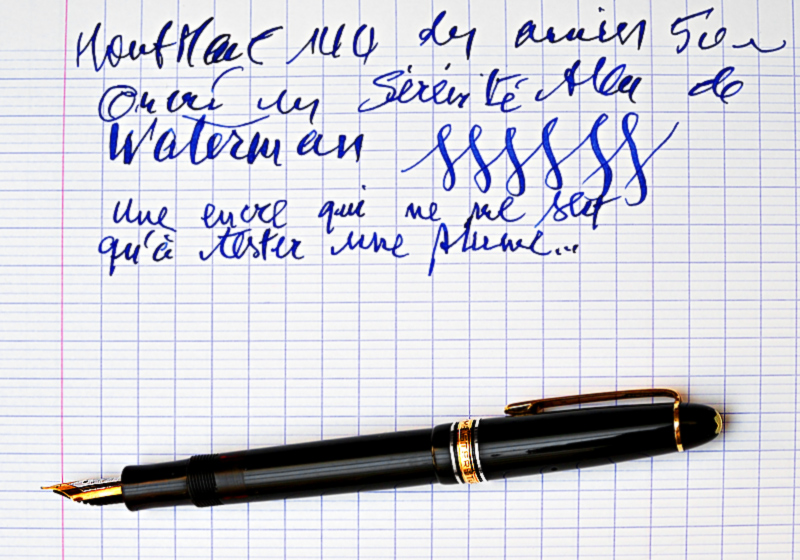 MontBlanc 144 des années 50
Encré en Sérénité Bleu de
Waterman
Une encre qui ne me sert
qu'à tester une plume...